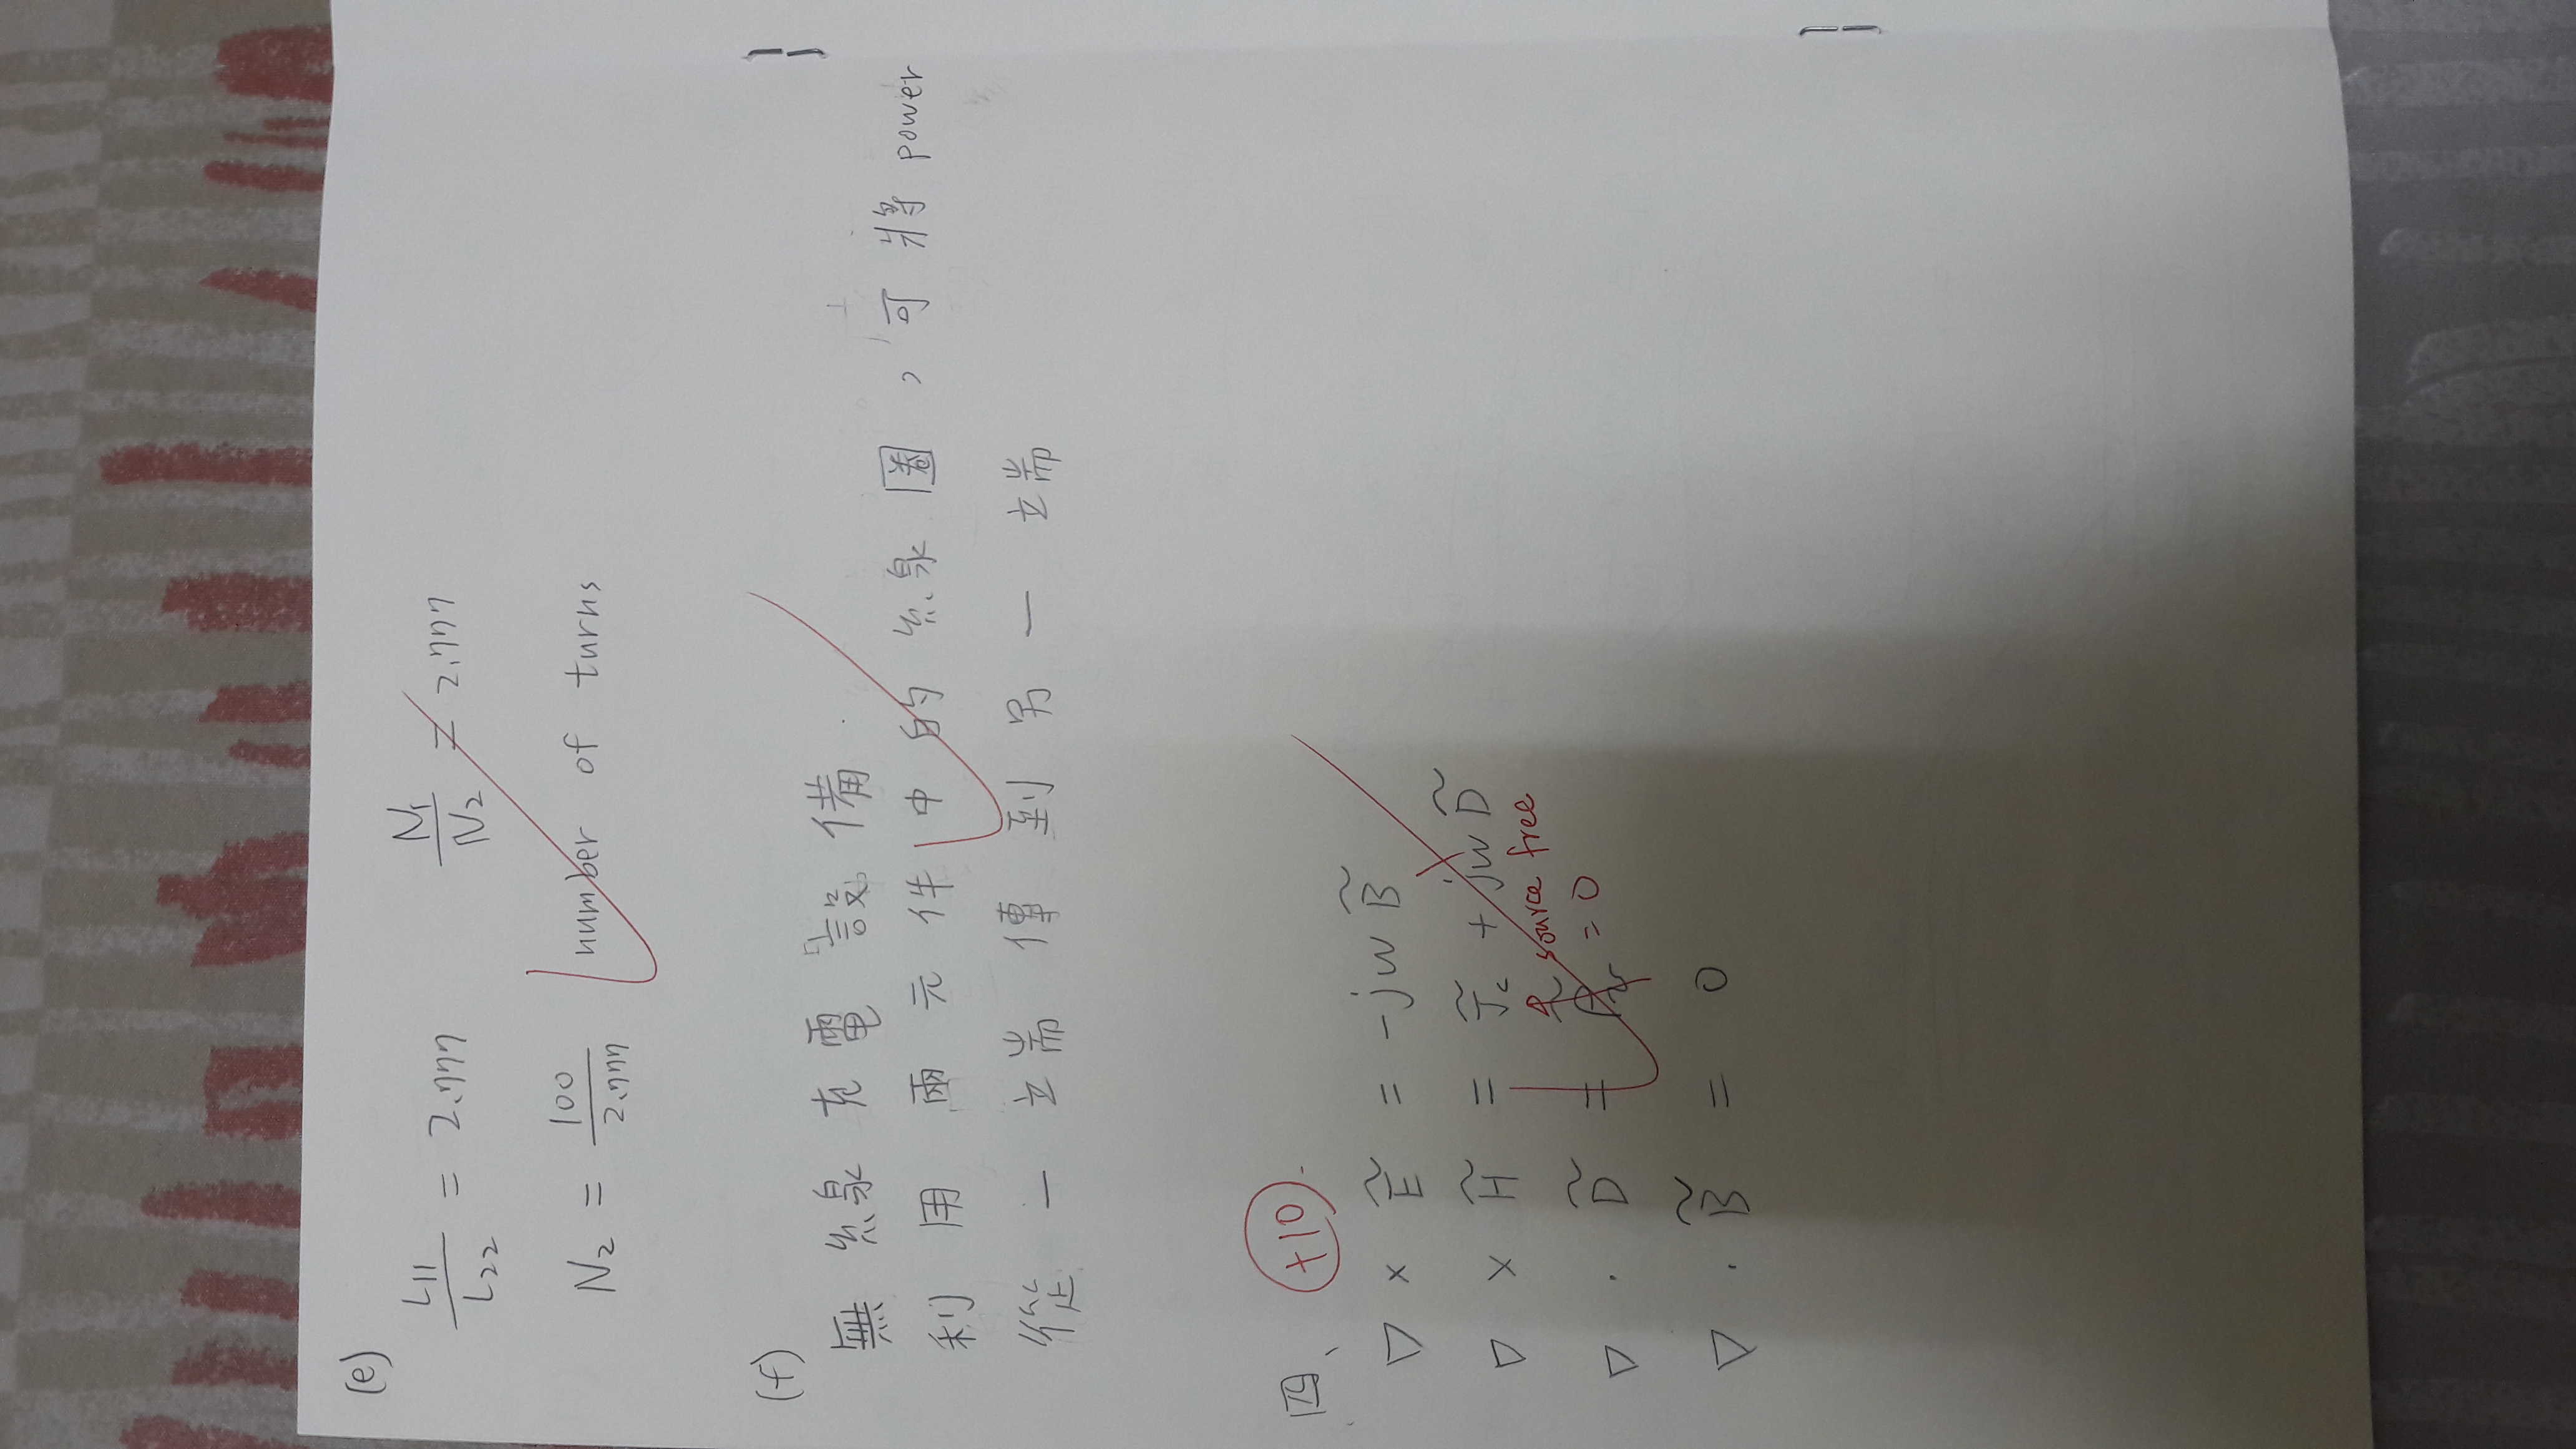 (e)
L11/L22 = 2.777    N1/N2 = 2.777
N2 = 100/2.777 number of turns
(f)
無線充電設備
利用兩元件中的線圈，可將power
從一端傳到另一端
四、 +10
∇ × Ẽ = -jw B̃
∇ × H̃ = J̃c + jw D̃
source free
∇ · D̃ = ρ̃v = 0
∇ · B̃ = 0